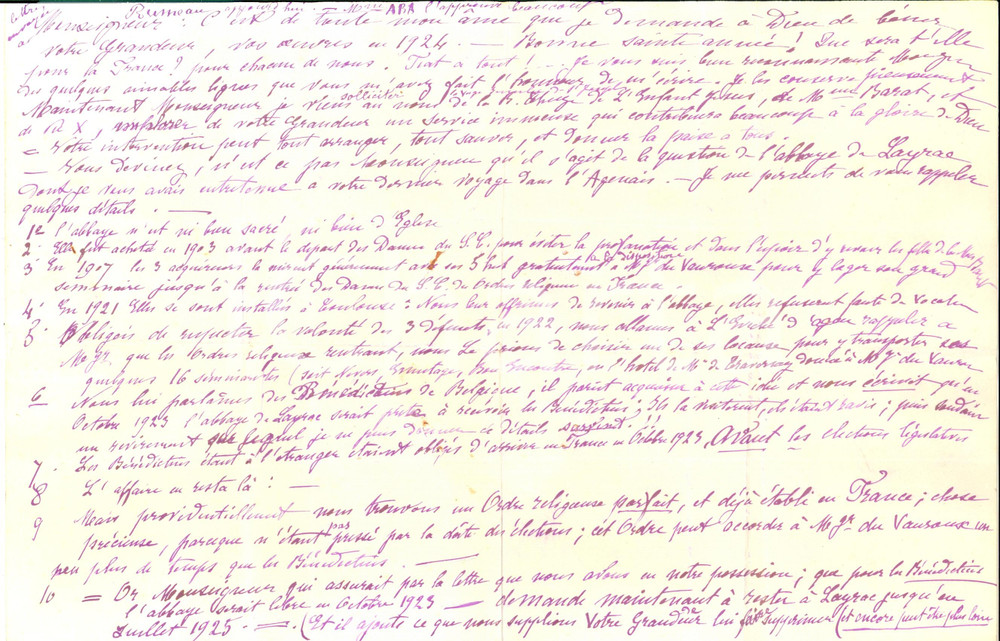 Monseigneur : C'est de toute mon âme que je demande à Dieu de bénir
votre Grandeur, vos œuvres en 1924. — Bonne sainte année ! Que sera t'elle
pour la France ? pour chacun de nous. Fiat à tout ! — Je vous suis bien reconnaissante Monseigneur
des quelques aimables lignes que vous m'avez fait l'honneur de m'écrire. Je les conserve pieusement
Maintenant Monseigneur je viens solliciter au nom de la B. Thérèse de L'Enfant Jésus, de Mme Barat, et
de Pie X, de votre Grandeur un service immense qui contribuera beaucoup à la gloire de Dieu
= Votre intervention peut tout arranger, tout sauver, et donner la paix à tous.
— Vous devinez, n'est ce pas Monseigneur qu'il s'agit de la question de l'abbaye de Layrac
dont je vous avais entretenue à votre dernier voyage dans l'Agenais. — Je me permets de vous rappeler
quelques détails. —
1º l'abbaye n'est ni bien sacré, ni bien d'Eglise
2º Elle fut achetée en 1903 avant le départ des Dames du S.C. pour éviter la profanation et dans l'espoir d'y revoir les filles de la
3º En 1907 les 3 acquéreurs la mirent généreusement gratuitement à la disposition de Mgr du Vauroux pour y loger son grand
séminaire jusqu'à la rentrée des Dames du S.C. ou Ordres religieux en France.
4º En 1921 Elles se sont installées à Toulouse : Nous leur offrîmes de revenir à l'abbaye, elles refusèrent faute de vocations
5º Obligés de respecter la volonté des 3 défunts, en 1922, nous allâmes à L'Evêché d'Agen rappeler à
Mgr. que les Ordres religieux rentrant, nous Le priions de choisir un de ses locaux pour y transporter ses
quelques 16 séminaristes (soit Nérac, Ermitage, Bon Encontre, ou l'hôtel de Mr de donné à Mgr du Vauroux
6 Nous lui parlâmes des Bénédictins de Belgique, il parut acquiescer à cette idée et nous écrivit qu'en
Octobre 1923 l'abbaye de Layrac serait prête à recevoir les Bénédictins ; Ils la visitèrent, ils étaient ravis ; puis
un revirement je ne puis donner ce détail surprend !!
7. Les Bénédictins étant à l'étranger étaient obligés d'arriver en France en Octobre 1923, Avant les élections législatives
8 L'affaire en resta là : —
9 Mais providentiellement nous trouvons un Ordre religieux parfait, et déjà établi en France ; chose
précieuse, parceque n'étant pas pressé par la date des élections ; cet Ordre peut accorder à Mgr. du Vauroux un
peu plus de temps que les Bénédictins. —
10 = Or Monseigneur qui assurait par la lettre que nous avons en notre possession ; que pour les Bénédictins
l'abbaye serait libre en Octobre 1923 — demande maintenant à rester à Layrac jusqu'en
Juillet 1925 = (Et il ajoute ce que nous supplions Votre Grandeur lui faire supprimer (et encore peut être plus loin